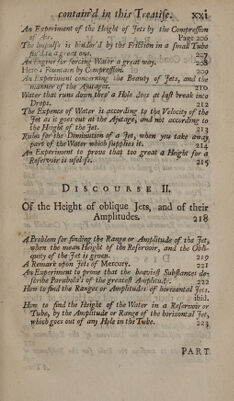 contain'd in this Treatise. xxi
An Experiment of the Height of Jets by the Compression
of Air. Page 206
The Impulse is hinder'd by the Friction in a small Tube
first to a great one. 207
An Engine for forcing Water a great way. 208
Hero's Fountain by Compression 209
An Experiment concerning the Beauty of Jets, and the
manner of the Ajutages. 210
Water that runs down thro' a Hole does at last break into
Drops. 212
The Expence of Water is according to the Velocity of the
Jet as it goes out at the Ajutage, and not according to
the Height of the Jet. 213
Rules for the Diminution of a Jet, when you take away
part of the Water which supplies it. 214
An Experiment to prove that too great a Height for a
Reservoir is useless. 215
DISCOURSE II.
Of the Height of oblique Jets, and of their
Amplitudes. 218
A Problem for finding the Range or Amplitude of the Jet,
when the mean Height of the Reservoir, and the Obli-
quity of the Jet is given. 219
A Remark upon Jets of Mercury. 221
An Experiment to prove that the heaviest Substances de-
scribe Parabola's of the greatest Amplitude. 222
How to find the Ranges or Amplitudes of horizontal Jets.
ibid.
How to find the Height of the Water in a Reservoir or
Tube, by the Amplitude or Range of the horizontal Jet,
which goes out of any Hole in the Tube. 223
PART